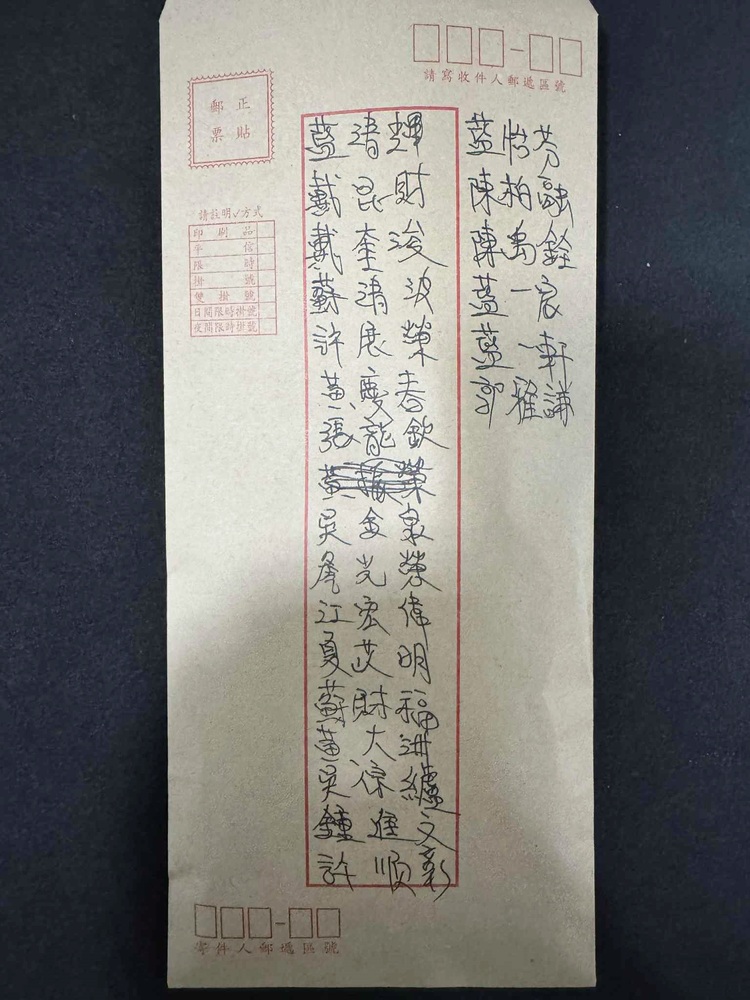 請寫收件人郵遞區號
正貼
郵票
請註明✓方式
印刷品
平信
限時
掛號
雙掛號
日間限時掛號
夜間限時掛號
藍怡芬
陳柏融
陳禹銓
藍一宸
藍一軒
郭雅謙
藍清輝
戴昆財
戴奎浚
蘇清波
許展榮
黃慶春
張龍欽
黃榮
吳金泉
詹光榮
江宏偉
夏苡明
蘇財福
黃大洲
吳
鐘進文
許順彰
寄件人郵遞區號